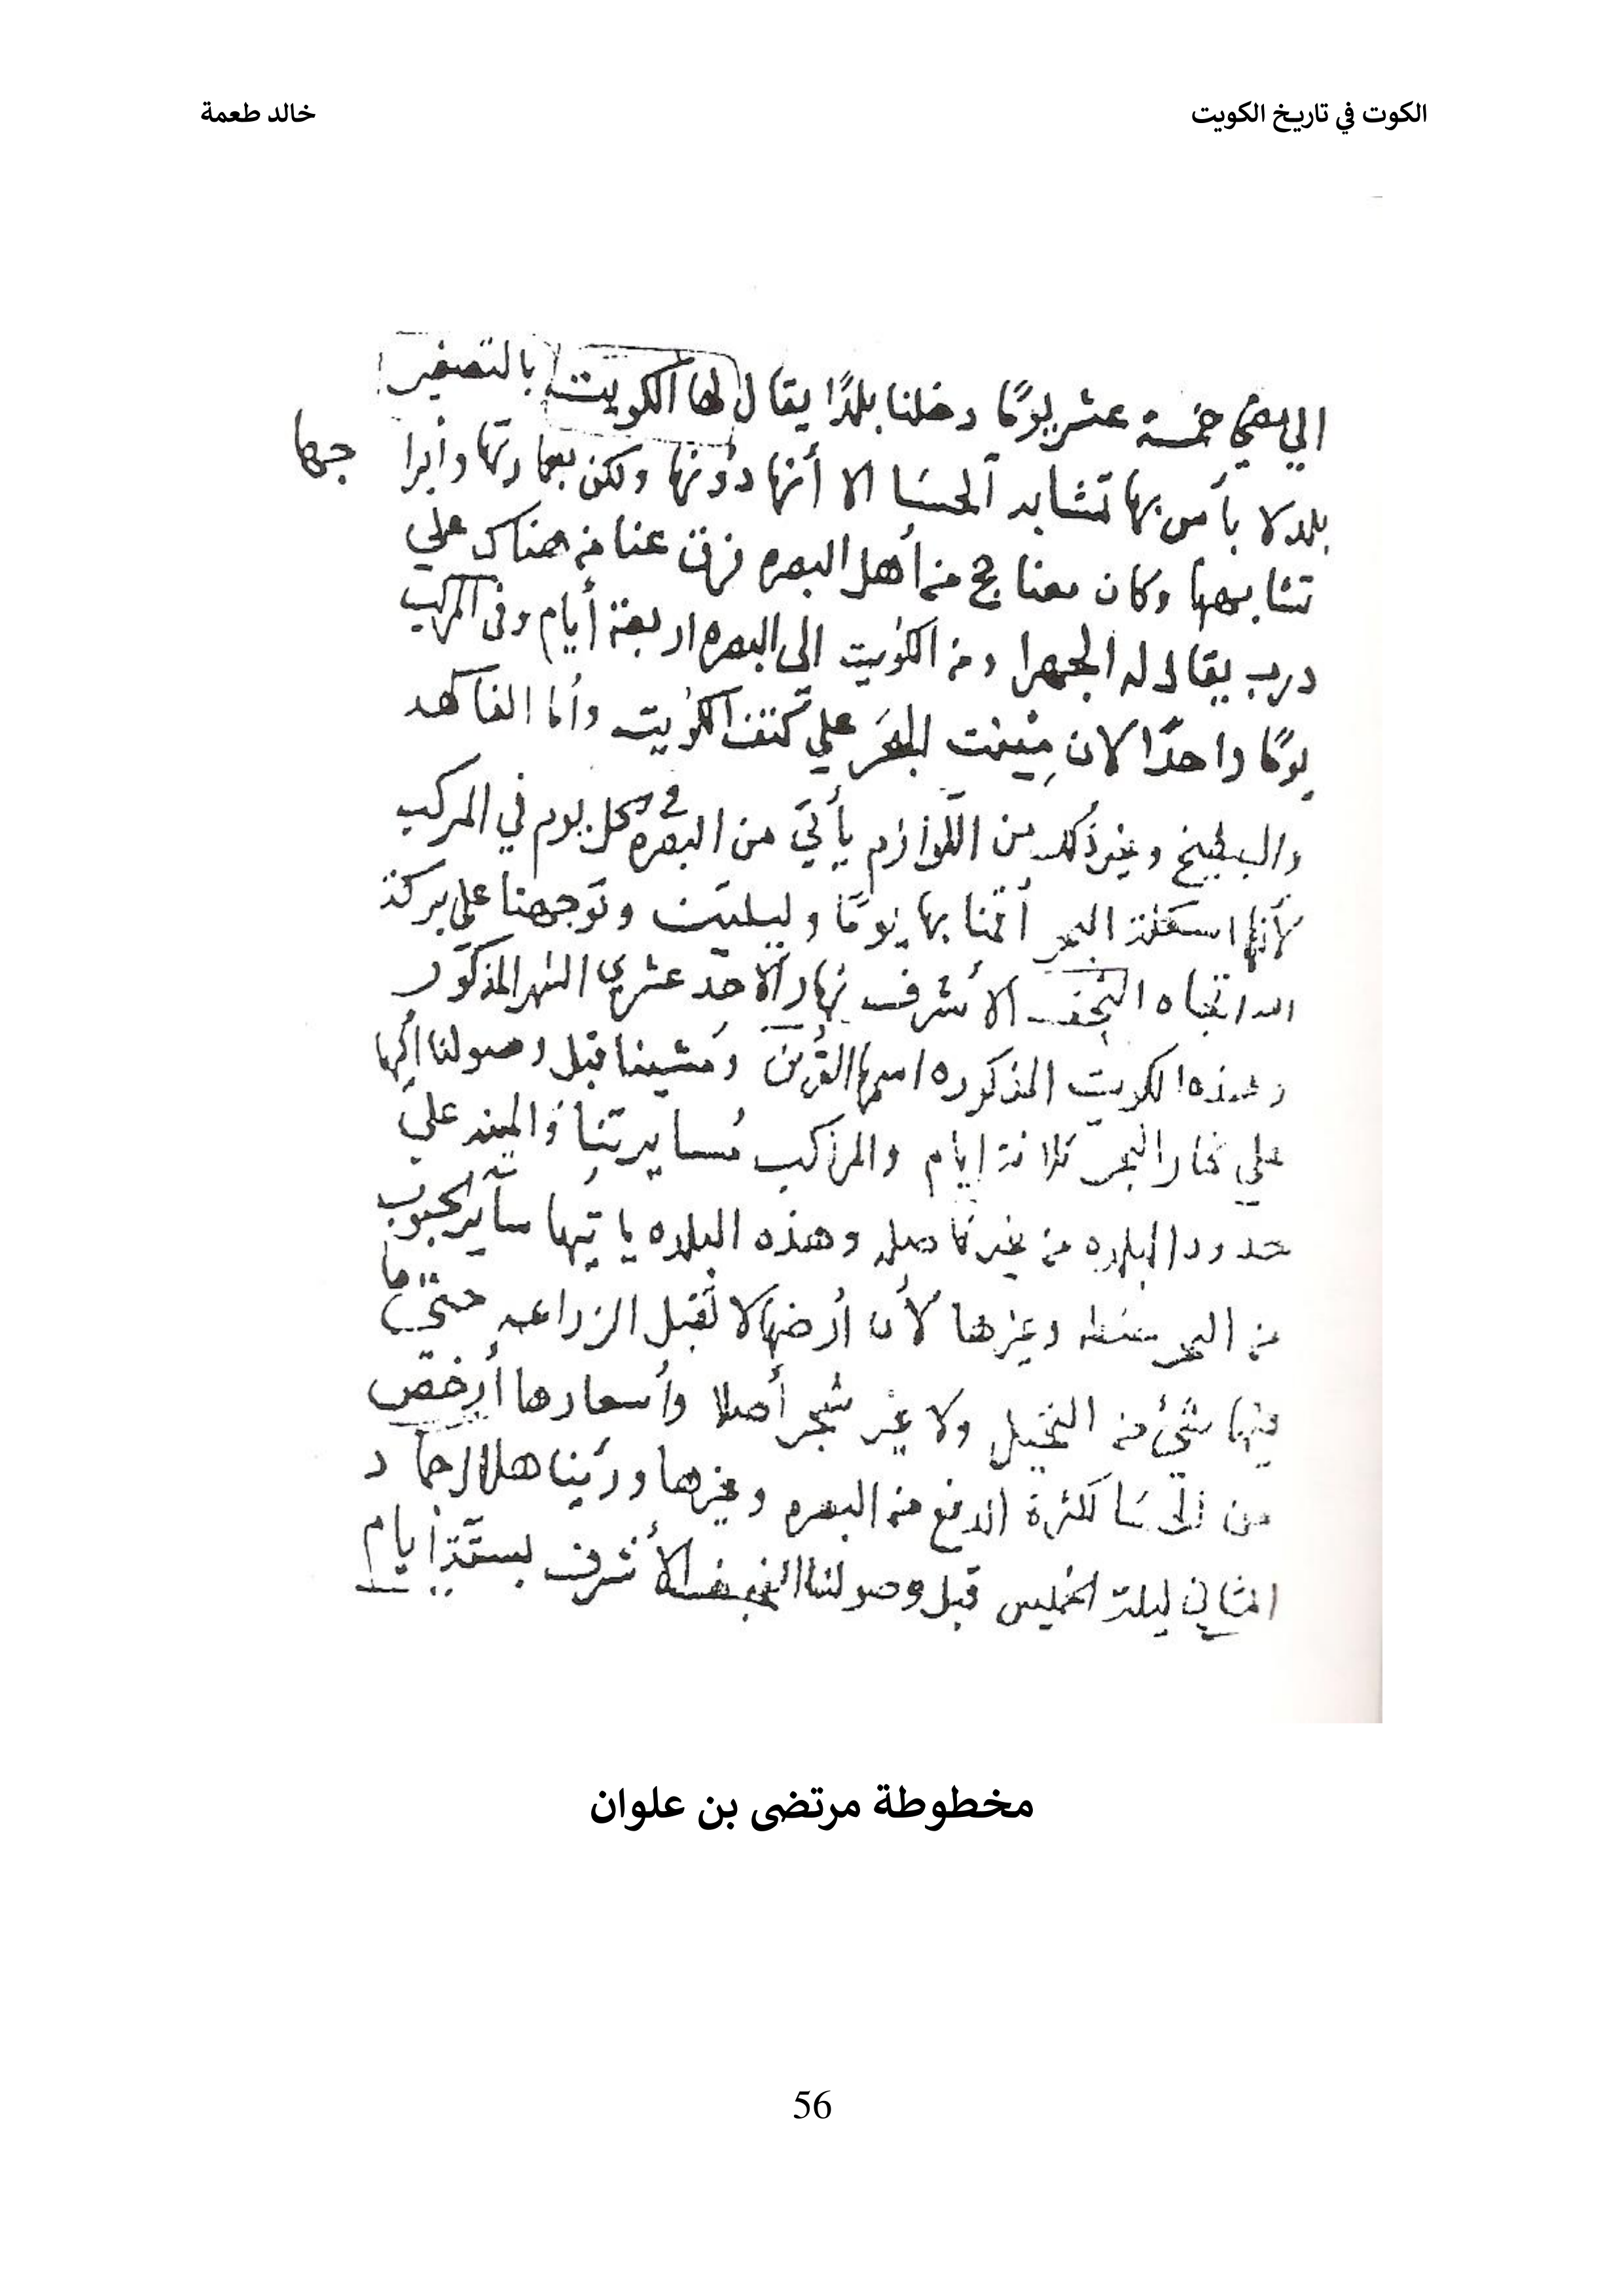 الكوت في تاريخ الكويت
خالد طعمة
الى مضي خمسة عشر يومًا دخلنا بلدًا يقال لها الكويت بالتصغير
بلد لا بأس بها تشابه الحسا الا أنها دونها ولكن بعمارتها وأبراجها
تشابهها وكان معنا حج من أهل البصره فرق عنا من هناك علي
درب يقال له الجهرا ومن الكويت الى البصره اربعة أيام وفي المركب
يومًا واحدًا لان مينت البحر علي كتف الكويت وأما الفاكهه
والبطيخ وغير ذلك من اللوازم يأتي من البصره في كل يوم في المركب
لأنها اسكلة البحر أقمنا بها يومًا وليلتين وتوجهنا على بركة
الله تجاه النجف الأشرف نهار الأحد عشري الشهر المذكور
وهذه الكويت المذكوره اسمها القرين ومشينا قبل وصولنا اليها
علي كنار البحر ثلاثة ايام والمراكب مسايرتنا والمينه علي
حدود البلده من غير فاصله وهذه البلده ياتيها سآير الحبوب
من البحر حنطه وغيرها لأن أرضها لا تقبل الزراعه حتى ما
فيها شيء من النخيل ولا غير شجر أصلا وأسعارها أرخص
من الحسا لكثرة الدفع من البصره وغيرها ورئينا هلال جماد
الثاني ليلة الخميس قبل وصولنا النجف الأشرف بستة أيام
مخطوطة مرتضى بن علوان
56